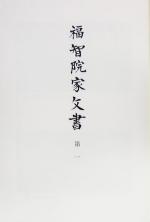 福智院家文書
第一